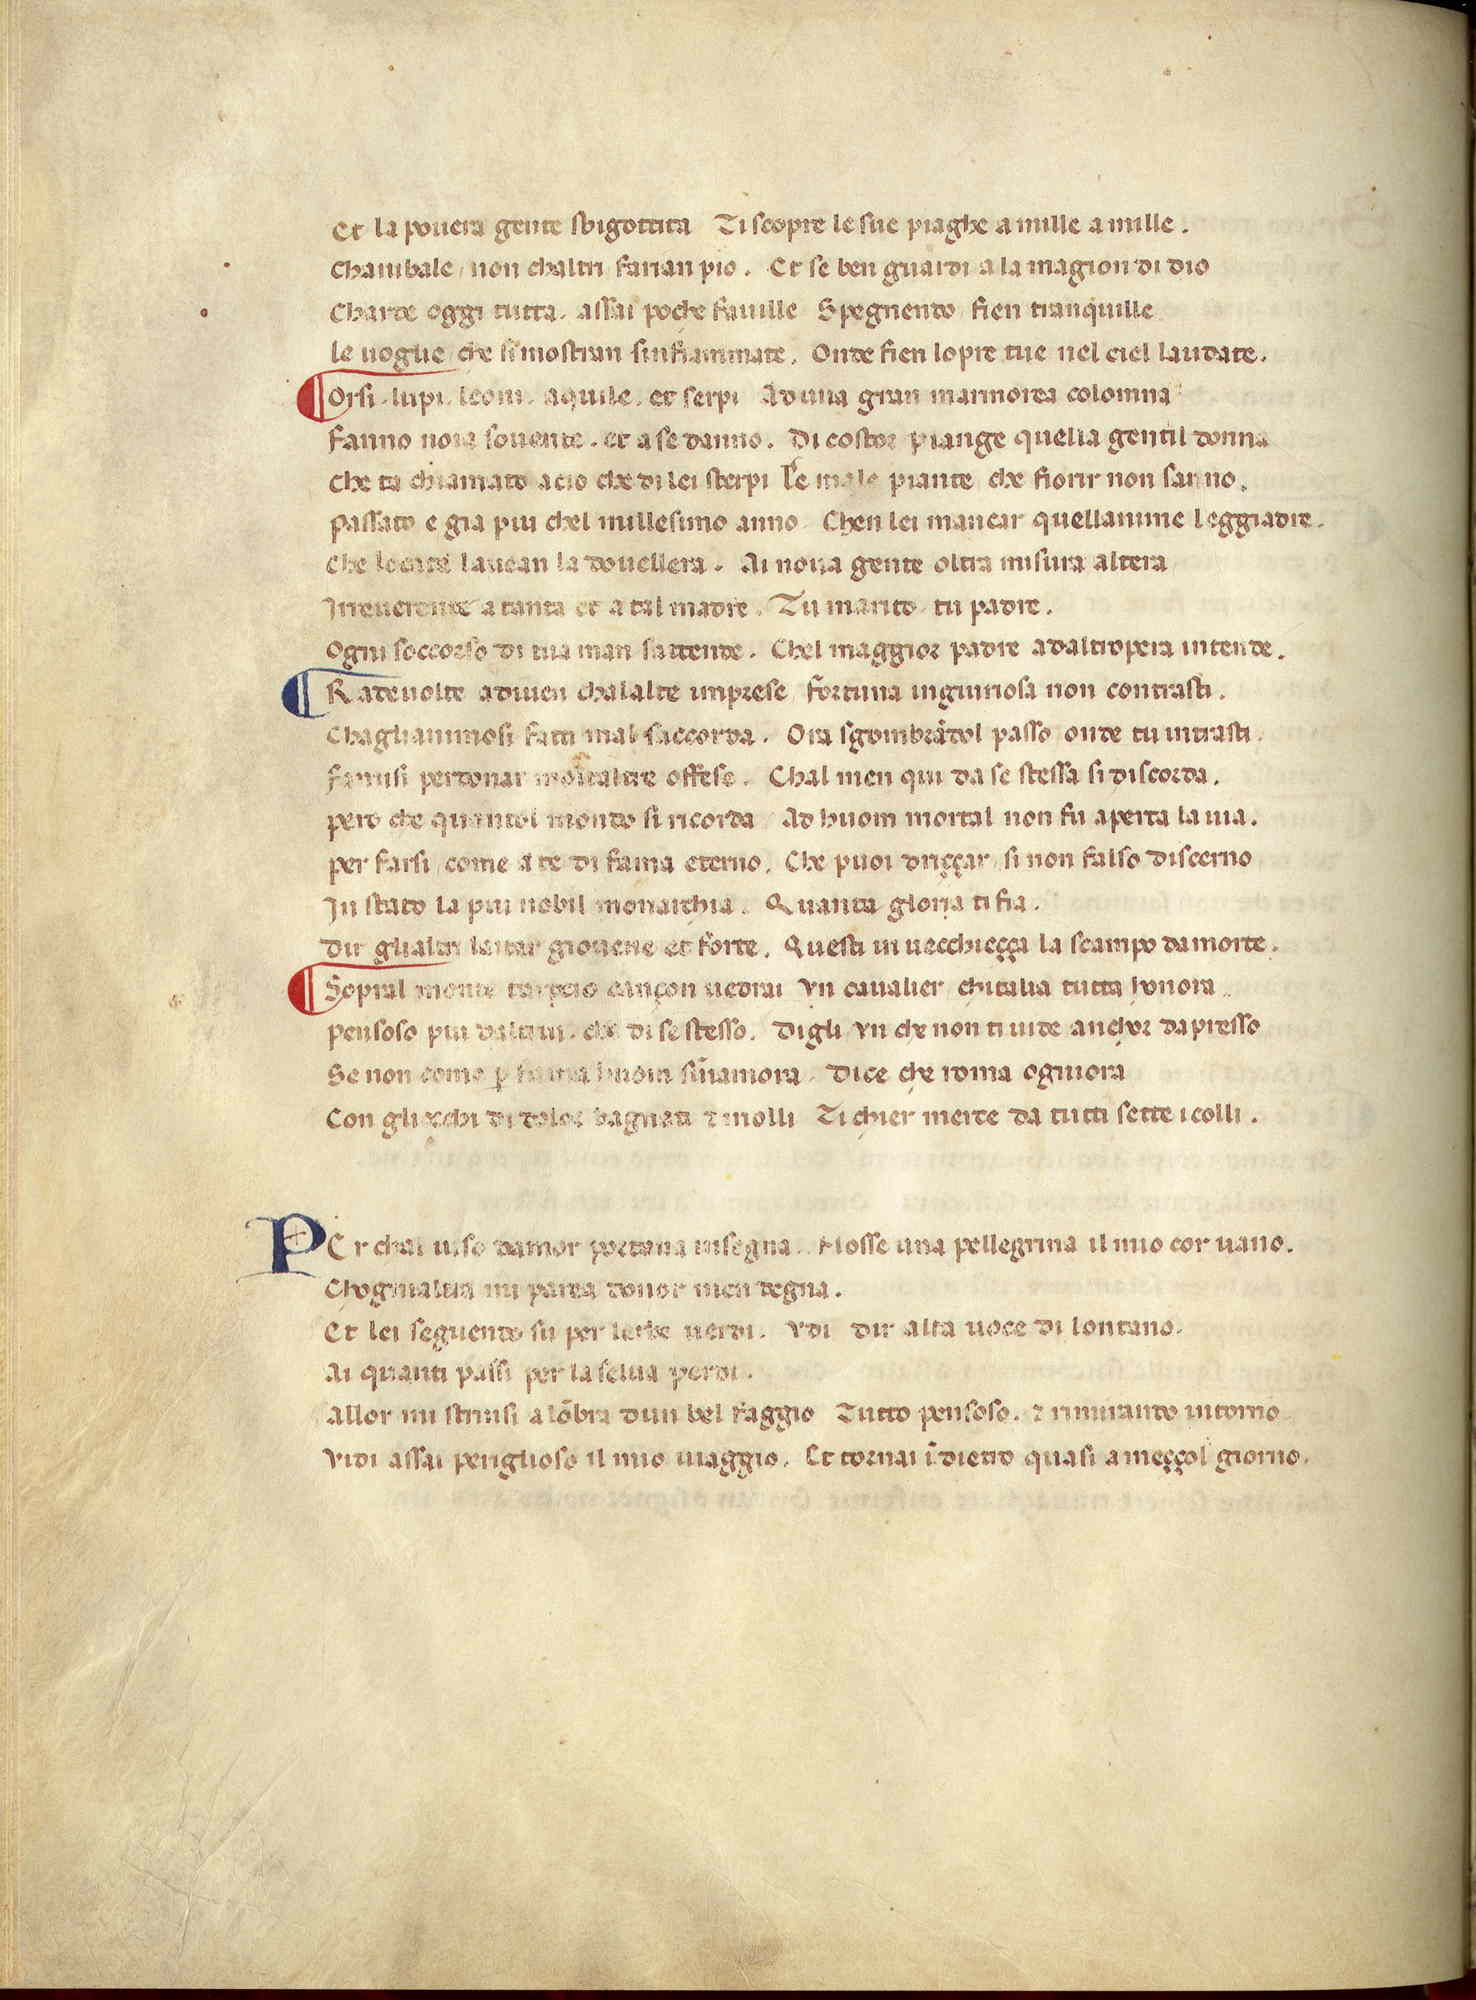 Et la pouera gente sbigottita Ti scopre le sue piaghe a mille a mille.
Chanibale, non chaltri farian pio. Et se ben guardi a la magion di dio
Charde oggi tutta. assai poche fauille Spegnendo fien tranquille
le uoglie che si mostran sinfiammate. Onde fien lopre tue nel ciel laudate.
Orsi. lupi. leoni. aquile. et serpi Ad una gran marmorea colomna
fanno noia souente. et a se danno. Di costor piange quella gentil donna
Che ta chiamato acio che di lei sterpi Le male piante che fiorir non sanno.
passato e gia piu chel millesimo anno Chen lei mancar quellanime leggiadre.
Che locata lauean la douellera. Ai noua gente oltra misura altera
Irreuerente a tanta et a tal madre. Tu marito tu padre.
Ogni soccorso di tua man sattende. Chel maggior padre adaltropera intende.
Rade uolte adiuen chalalte imprese fortuna ingiuriosa non contrasti.
Chaglianimosi fatti mal saccorda. Ora sgombrādol passo onde tu intrasti.
fammisi perdonar moltaltre offese. Chal men qui da se stessa si discorda.
pero che quantol mondo si ricorda Ad huom mortal non fu aperta la uia.
per farsi come a te di fama eterno. Che puoi driççar si non falso discerno
In stato la piu nobil monarchia. Quanta gloria ti fia.
Dir glialtri laitar giouene et forte. Questi in uecchieçça la scampo da morte.
Sopral monte tarpeio cançon uedrai Vn caualier chitalia tutta honora
pensoso piu daltrui. che di se stesso. Digli vn che non ti uide anchor da presso
Se non come p̱ fama huom sīnamora. Dice che roma ogniora
Con gli occhi di dolor bagnati ⁊ molli Ti chier merce da tutti sette i colli.
PEr chal uiso damor portaua insegna. Mosse una pellegrina il mio cor uano.
Chognialtra mi parea donor men degna.
Et lei seguendo su per lerbe uerdi. Vdi dir alta uoce di lontano.
Ai quanti passi per la selua perdi.
Allor mi strinsi a lōbra dun bel faggio Tutto pensoso. ⁊ rimirando intorno
Vidi assai periglioso il mio uiaggio. Et tornai īdietro quasi a meççol giorno.